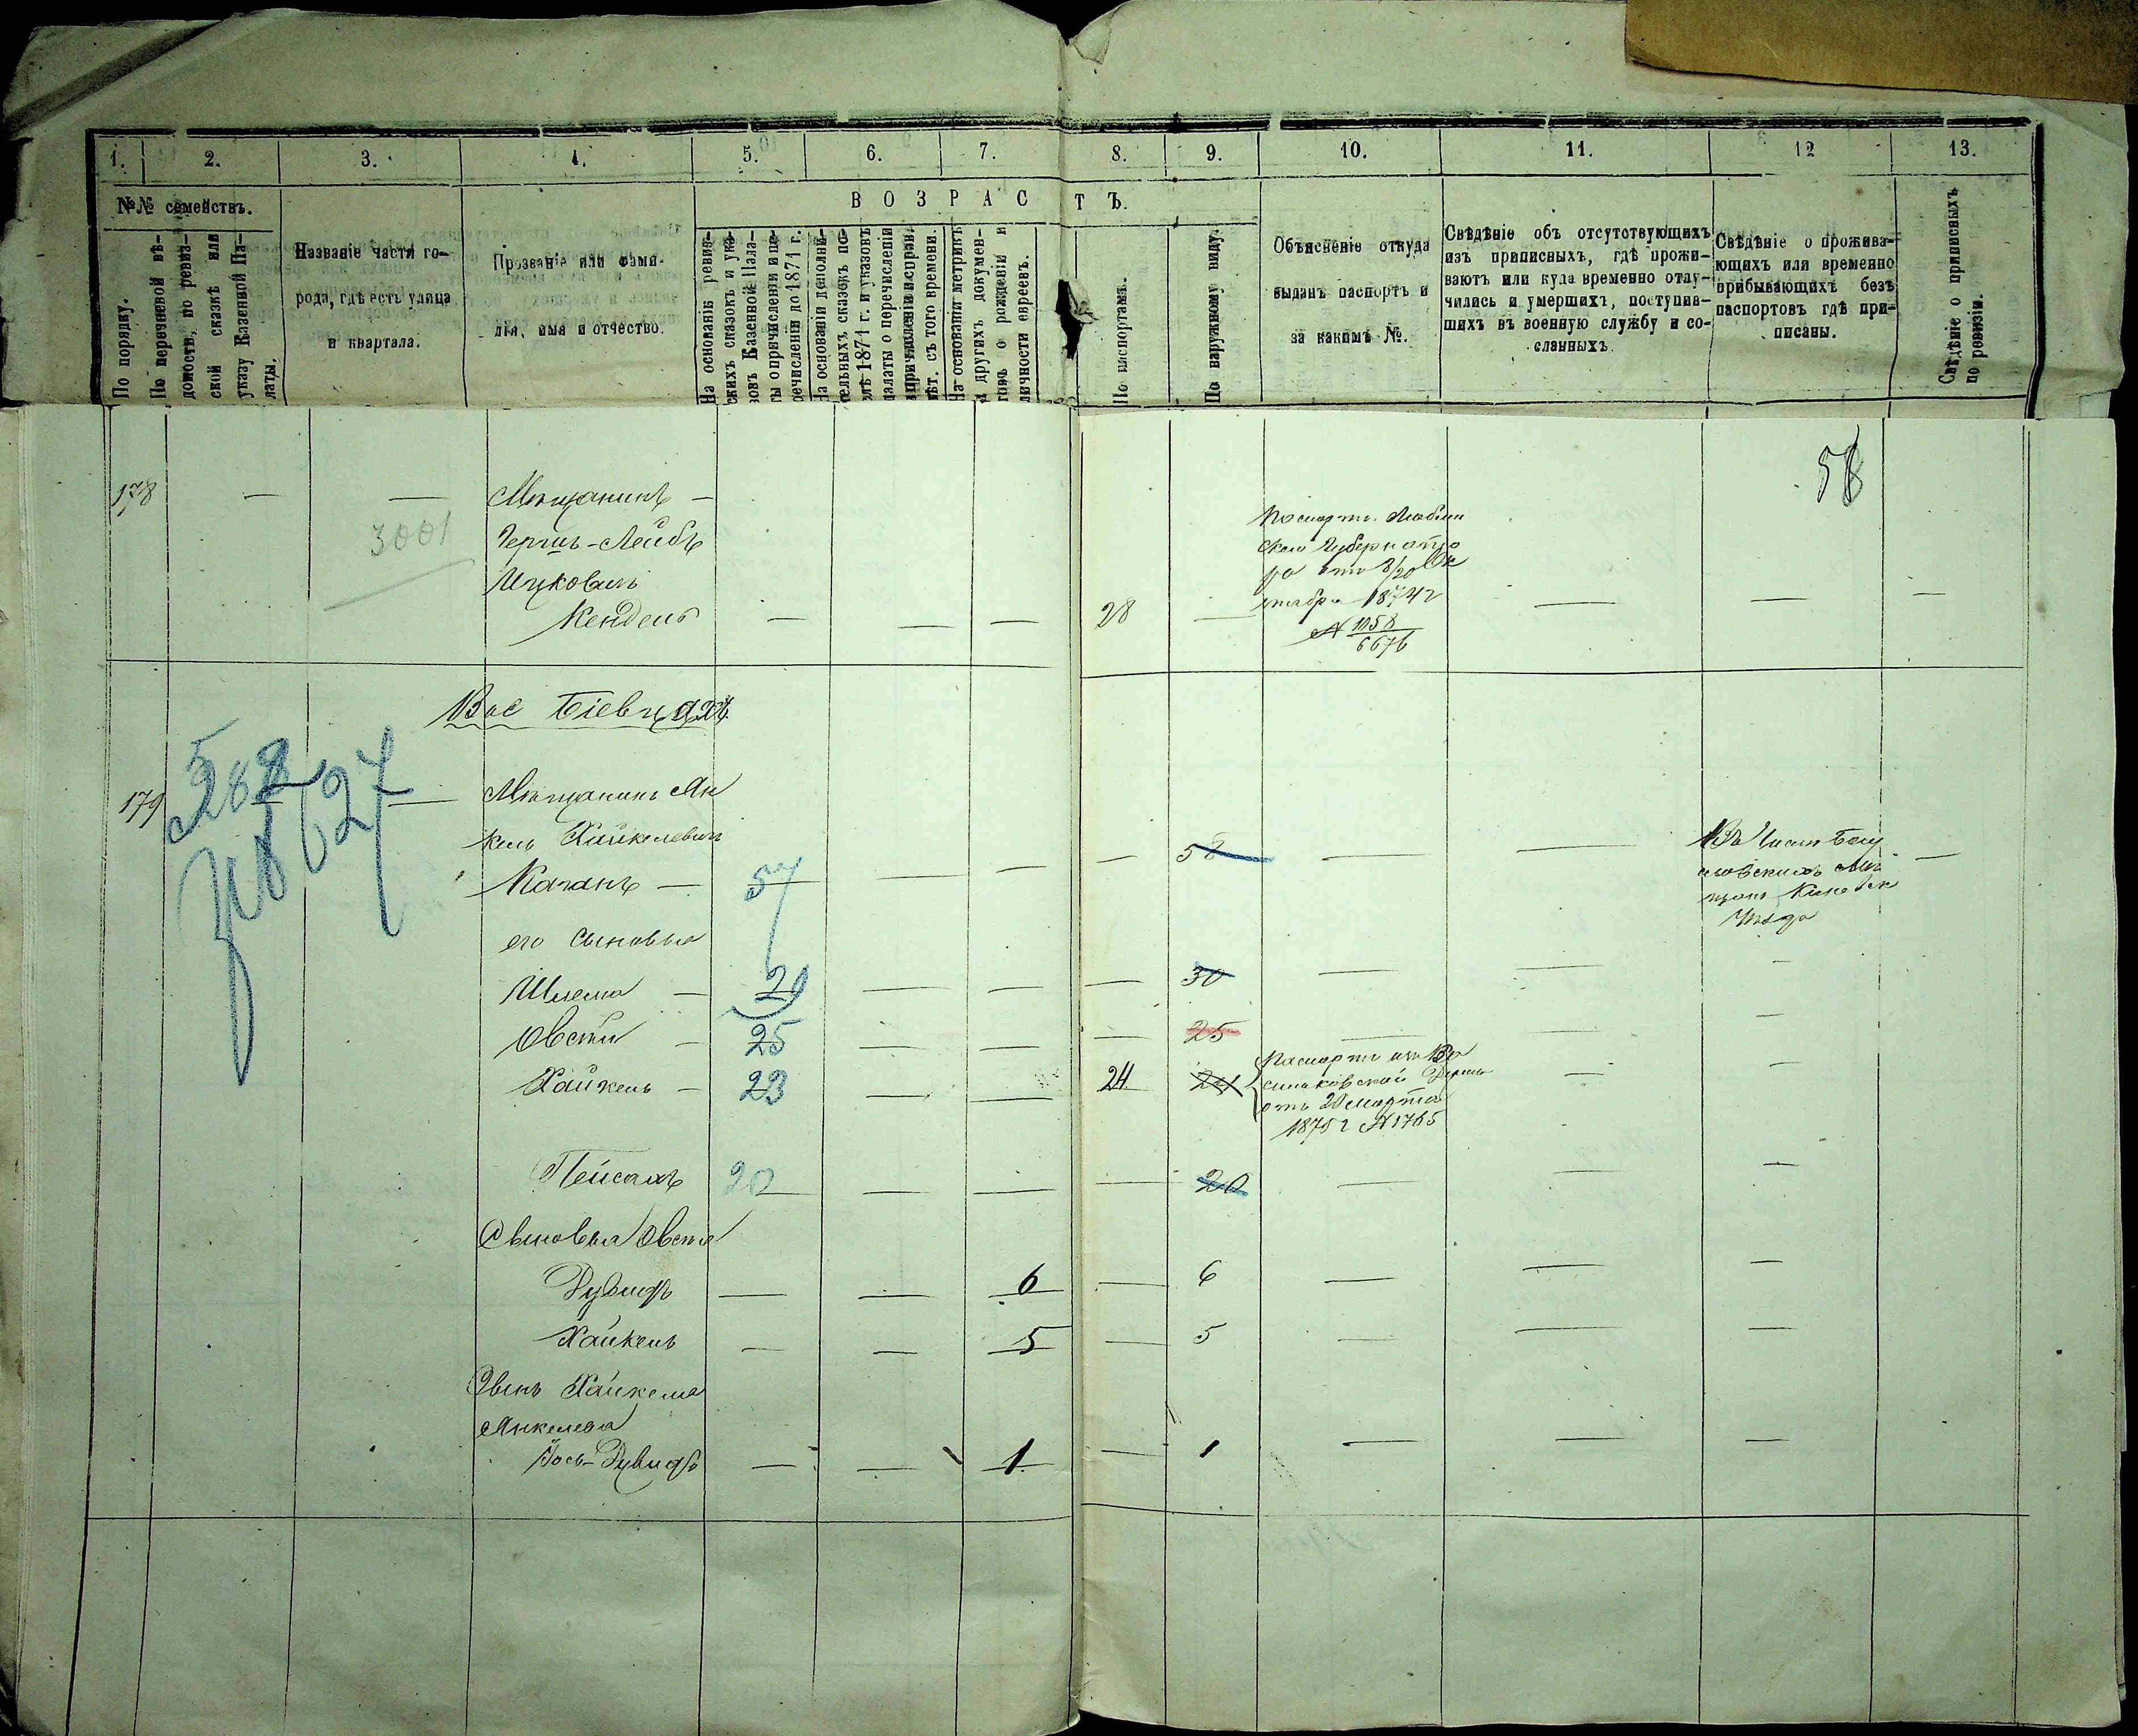 1. 2. 3. 4. 5. 6. 7. 8. 9. 10. 11. 12 13.
№№ семействъ.
По порядку.
По перечневой вѣ-
домости, по ревиз-
ской сказкѣ или
указу Казенной Па-
латы.
Названіе части го-
рода, гдѣ есть улица
и квартала.
Прозваніе или фами-
лія, имя и отчество.
ВОЗРАСТЪ.
На основаніи ревиз-
скихъ сказокъ и ука-
зовъ Казенной Пала-
ты о причисленіи и пе-
речисленіи до 1871 г.
На основаніи дополни-
тельныхъ сказокъ по-
слѣ 1871 г. и указовъ
палаты о перечисленіи
и причисленіи исправн.
лѣт. съ того времени.
На основаніи метрикъ
и другихъ докумен-
товъ о рожденіи и
личности евреевъ.
По паспортамъ.
По наружному виду.
Объясненіе откуда
выданъ паспортъ и
за какимъ №.
Свѣдѣніе объ отсутствующихъ
изъ приписныхъ, гдѣ прожи-
ваютъ или куда временно отлу-
чились и умершихъ, поступив-
шихъ въ военную службу и со-
сланныхъ.
Свѣдѣніе о прожива-
ющихъ или временно
прибывающихъ безъ
паспортовъ гдѣ при-
писаны.
Свѣдѣніе о приписныхъ
по ревизіи.
58
178 — — Мѣщанинъ —
3001 Гершъ-Лейбъ
Ицковичъ
Кендель — — — 28 — — — —
Паспортъ Люблин
скаго Губернато
ра отъ 8/20 Ок
тября 1874 г
№ 1058/6676
Вос Біевцахъ
179 — Мѣщанинъ Ян
кель Хайкелевичъ
Каганъ — 57 — — — 58 — —
его сыновья
Шлема — 29 — — — 30 — — —
Овсѣй — 25 — — — 25 — — —
Хайкель — 23 — — 24 24 — —
Паспортъ изъ Ва
сильковской Думы
отъ 20 марта
1875 г №1765
Пейсахъ 20 — — — 20 — — —
Сыновья Овсѣя
Дувидъ — — 6 — 6 — — —
Хайкель — — 5 — 5 — — —
Сынъ Хайкеля
Янкелева
Іось-Дувидъ — — 1 — 1 — — —